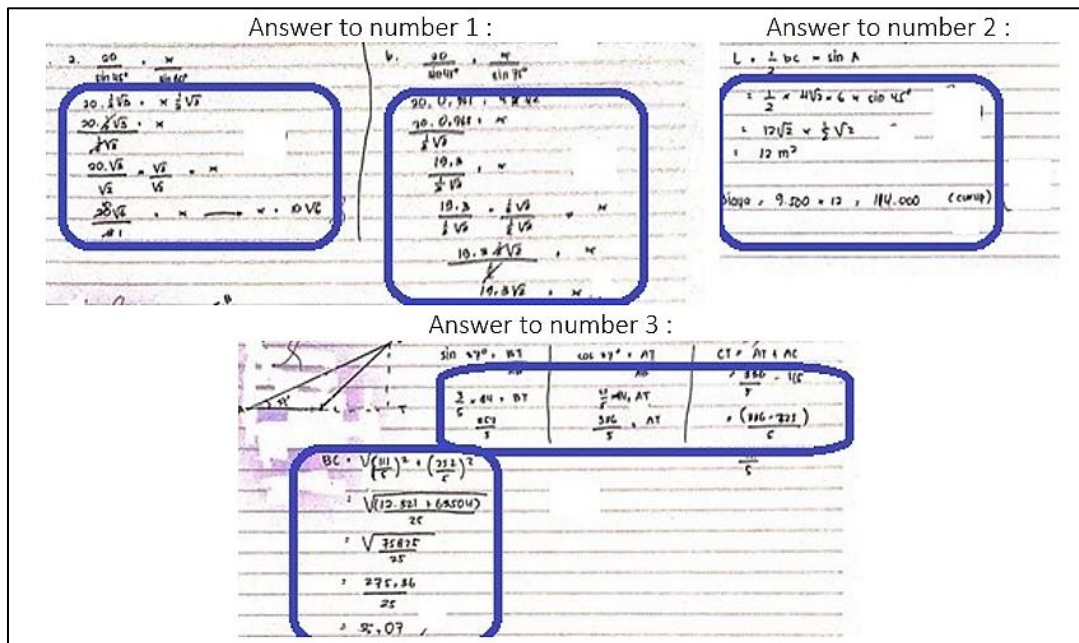 Answer to number 1 :
a. 20/sin 45° = x/sin 60°
20 . ½√3 = x ½√2
20 . ½√3 / ½√2 = x
20.√3/√2 × √2/√2 = x
20√6/2 = x → x = 10√6
b. 20/sin 45° = x/sin 75°
20 . 0,965 / ½√2 = x
19.3 / ½√2 = x
19.3/½√2 × ½√2/½√2 = x
19.3 ½√2 / ½ = x
19.3√2 = x
Answer to number 2 :
L = ½ bc × sin A
= ½ × 4√2 × 6 × sin 45°
= 12√2 × ½√2
= 12 m²
Biaya = 9.500 × 12 = 114.000 (cukup)
Answer to number 3 :
sin 37° = BT/AB
3/5 × 84 = BT
252/5
cos 37° = AT/AB
4/5 × 84 = AT
336/5 = AT
CT = AT - AC
= 336/5 - 45
= (336-225)/5
111/5
BC = √(111/5)² + (252/5)²
= √(12.321 + 63504)/25
= √75825/25
= 275,36/25
= 5,07